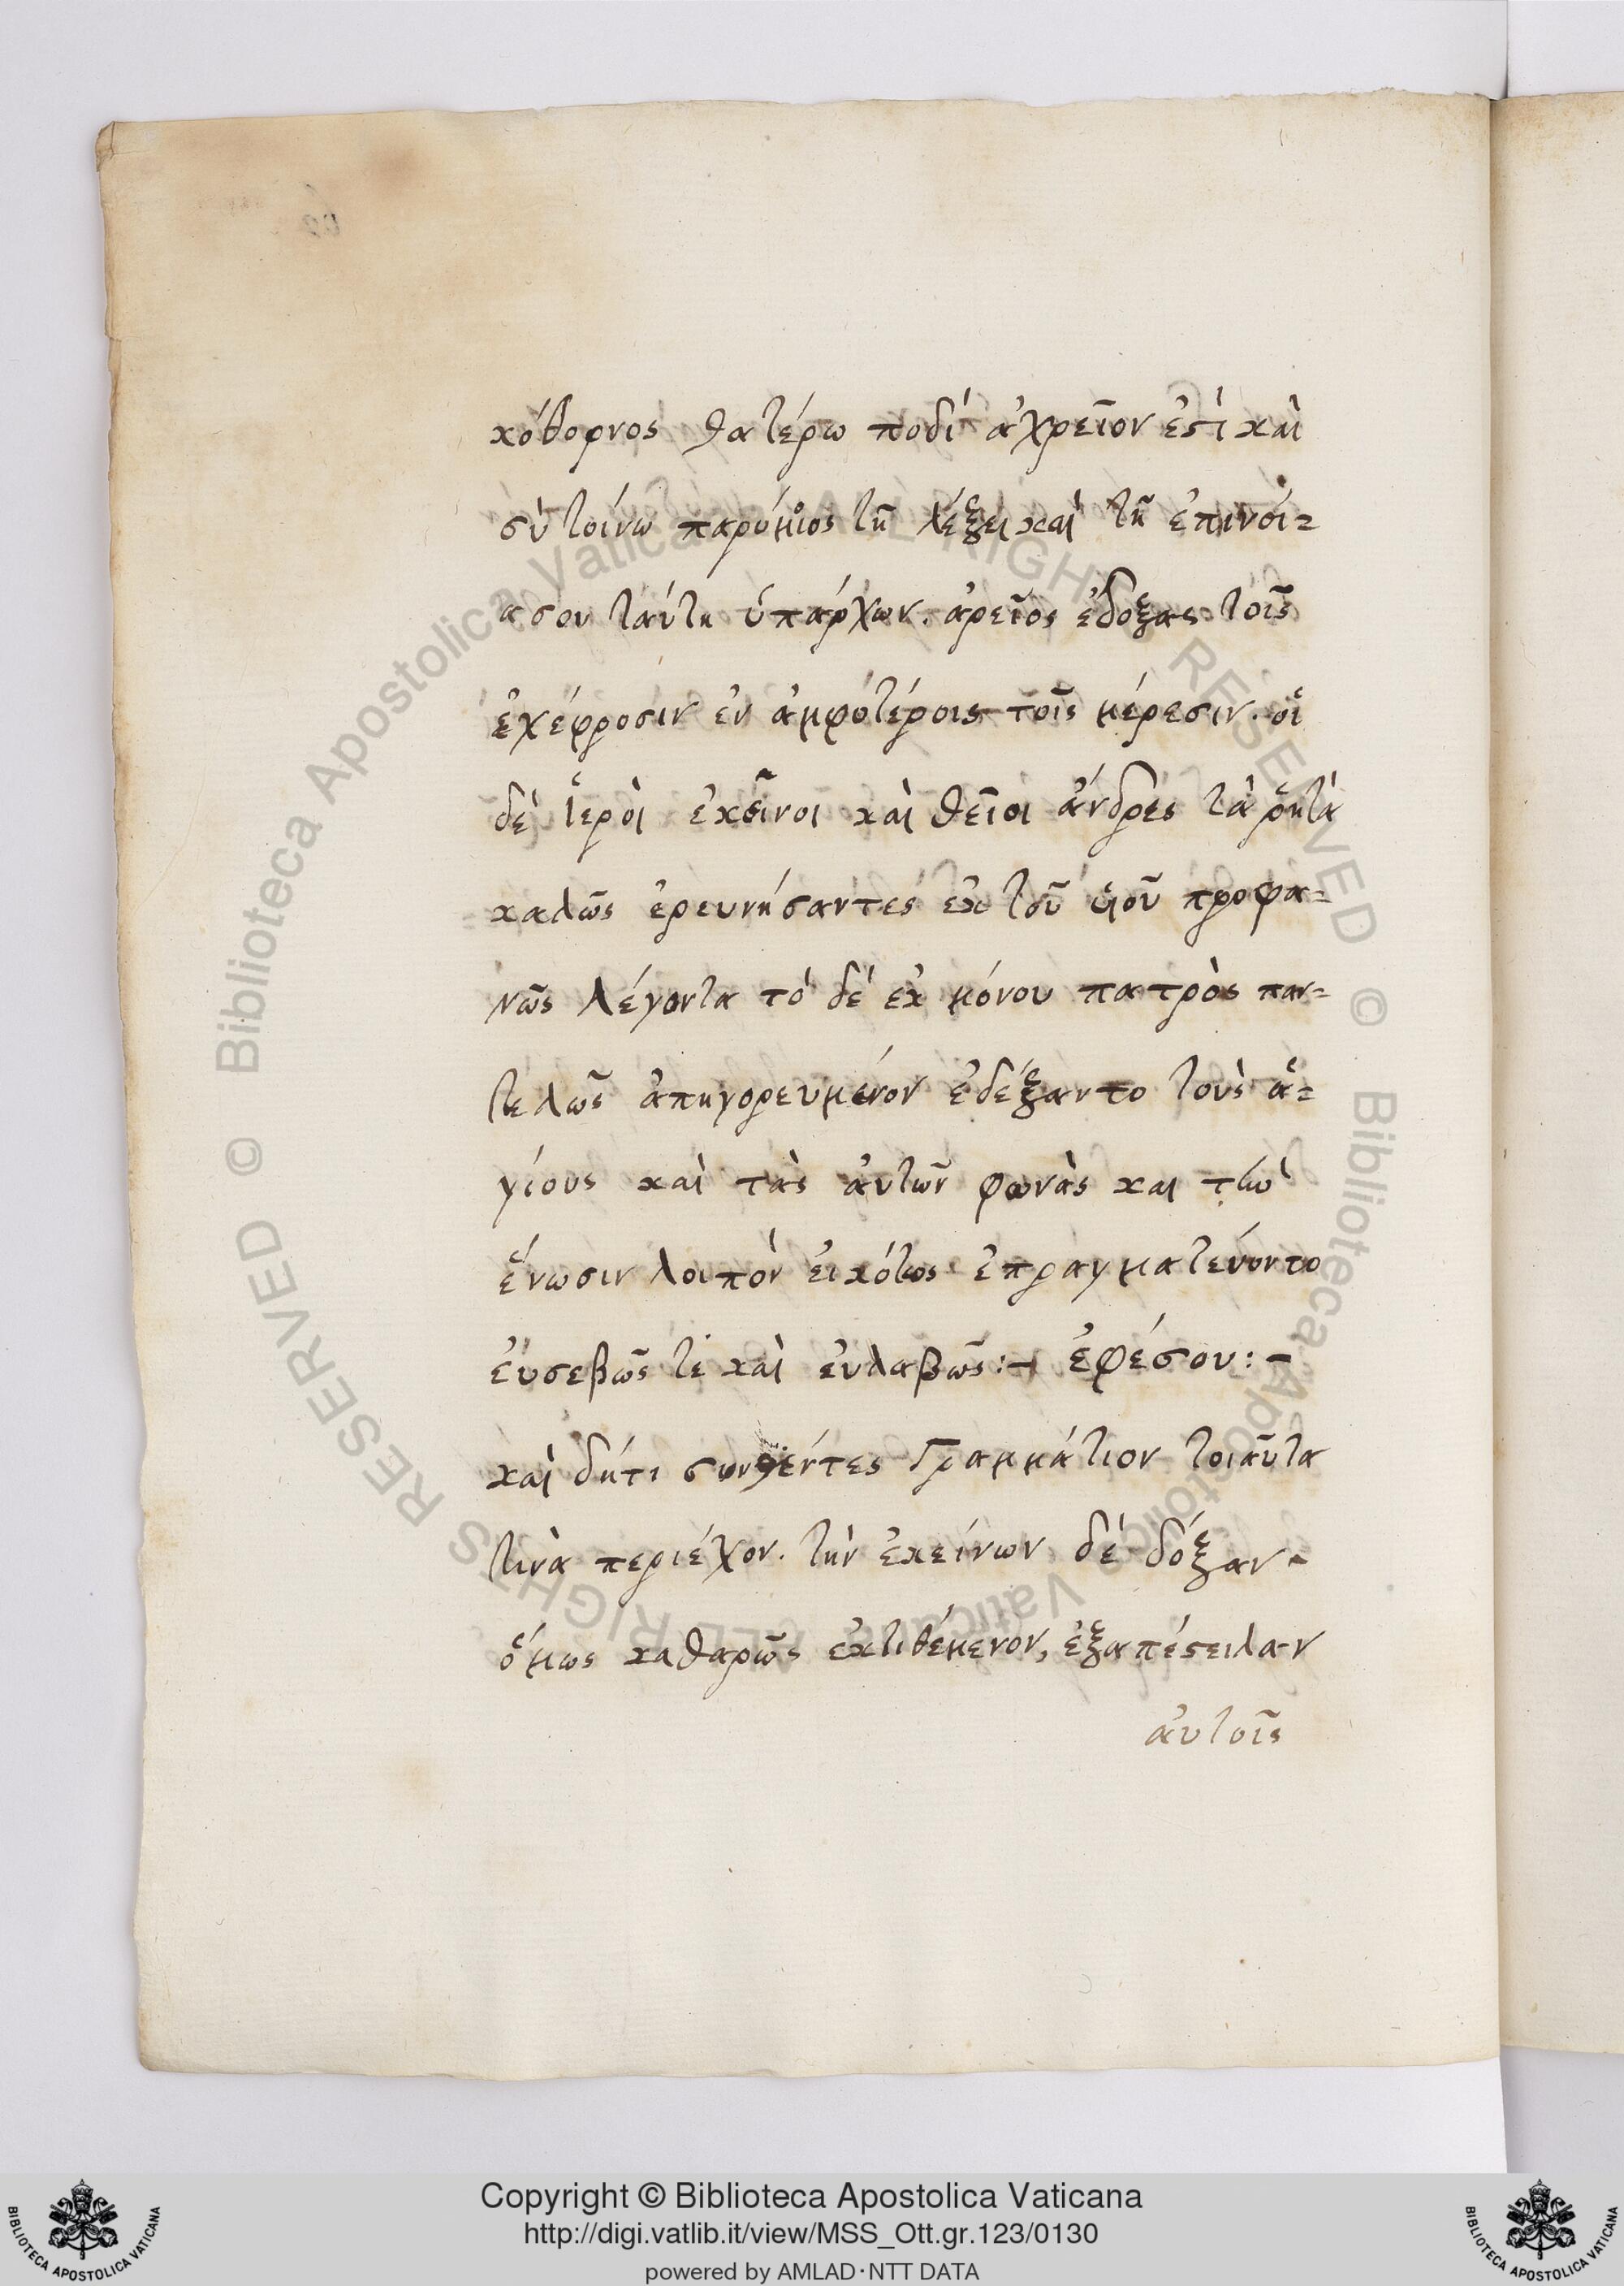 κόθορνος θατέρω ποδί ἀχρεῖον ἐστί καὶ
σὺ τοίνυ παρόμιος τῆ λέξει καὶ τῆ ἐπινοί=
α σου ταύτη ὑπάρχων. ἀρεῖος ἐδοξας τοῖς
ἐχέφροσιν ἐν ἀμφοτέροις τοῖς μέρεσιν. οἵ
δὲ ἱερὸι ἐκεῖνοι καὶ θεῖοι ἄνδρες τὰ ῥητὰ
καλῶς ἐρευνήσαντες ἐκ τοῦ ὑιοῦ προφα=
νῶς λέγοντα τό δέ ἐκ μόνου πατρὸς παν=
τελῶς ἀπηγορευμένον ἐδέξαντο τοὺς ἁ=
γίους καὶ τὰς ἀυτῶν φωνὰς και τὴν
ἕνωσιν λοιπὸν ἐικότως ἐπραγματεύοντο
ἐυσεβῶς τε καὶ ἐυλαβῶς:- ἐφέσου:-
καὶ δητι συνθέντες Γραμμάτιον τοιαῦτα
τινὰ περιέχον. τὴν ἐκείνων δέ δόξαν-
ὅμως καθαρῶς ἐκτιθέμενον, ἐξαπέστειλαν
ἀυτοῖς
Biblioteca Apostolica Vaticana ALL RIGHTS RESERVED ©
Biblioteca Apostolica Vaticana ALL RIGHTS RESERVED ©
Copyright © Biblioteca Apostolica Vaticana
http://digi.vatlib.it/view/MSS_Ott.gr.123/0130
powered by AMLAD·NTT DATA
BIBLIOTECA APOSTOLICA VATICANA
BIBLIOTECA APOSTOLICA VATICANA